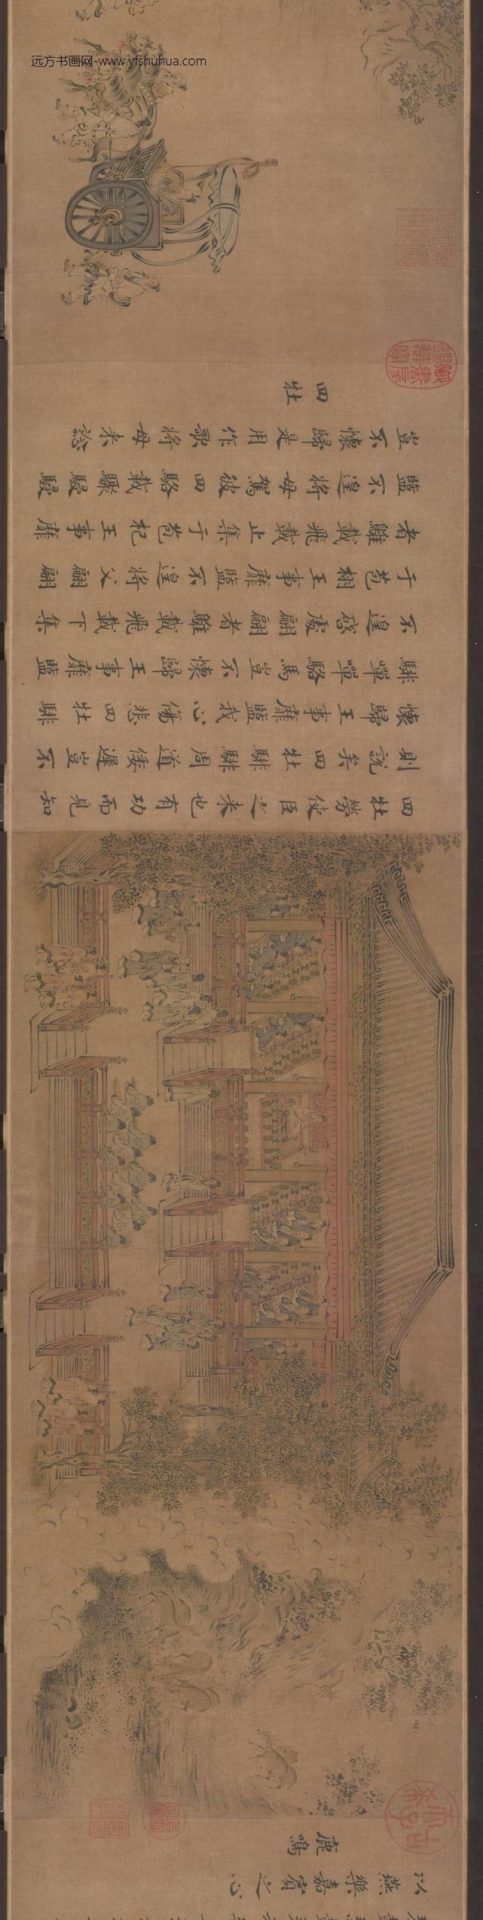 远方书画网-www.yfshuhua.com
以燕樂嘉賓之心
鹿鳴
四牡勞使臣之來也有功而見知
則說矣四牡騑騑周道倭遲豈不
懷歸王事靡盬我心傷悲四牡騑
騑嘽嘽駱馬豈不懷歸王事靡盬
不遑啓處翩翩者鵻載飛載下集
于苞栩王事靡盬不遑將父翩翩
者鵻載飛載止集于苞杞王事靡
盬不遑將母駕彼四駱載驟駸駸
豈不懷歸是用作歌將母來諗
四牡